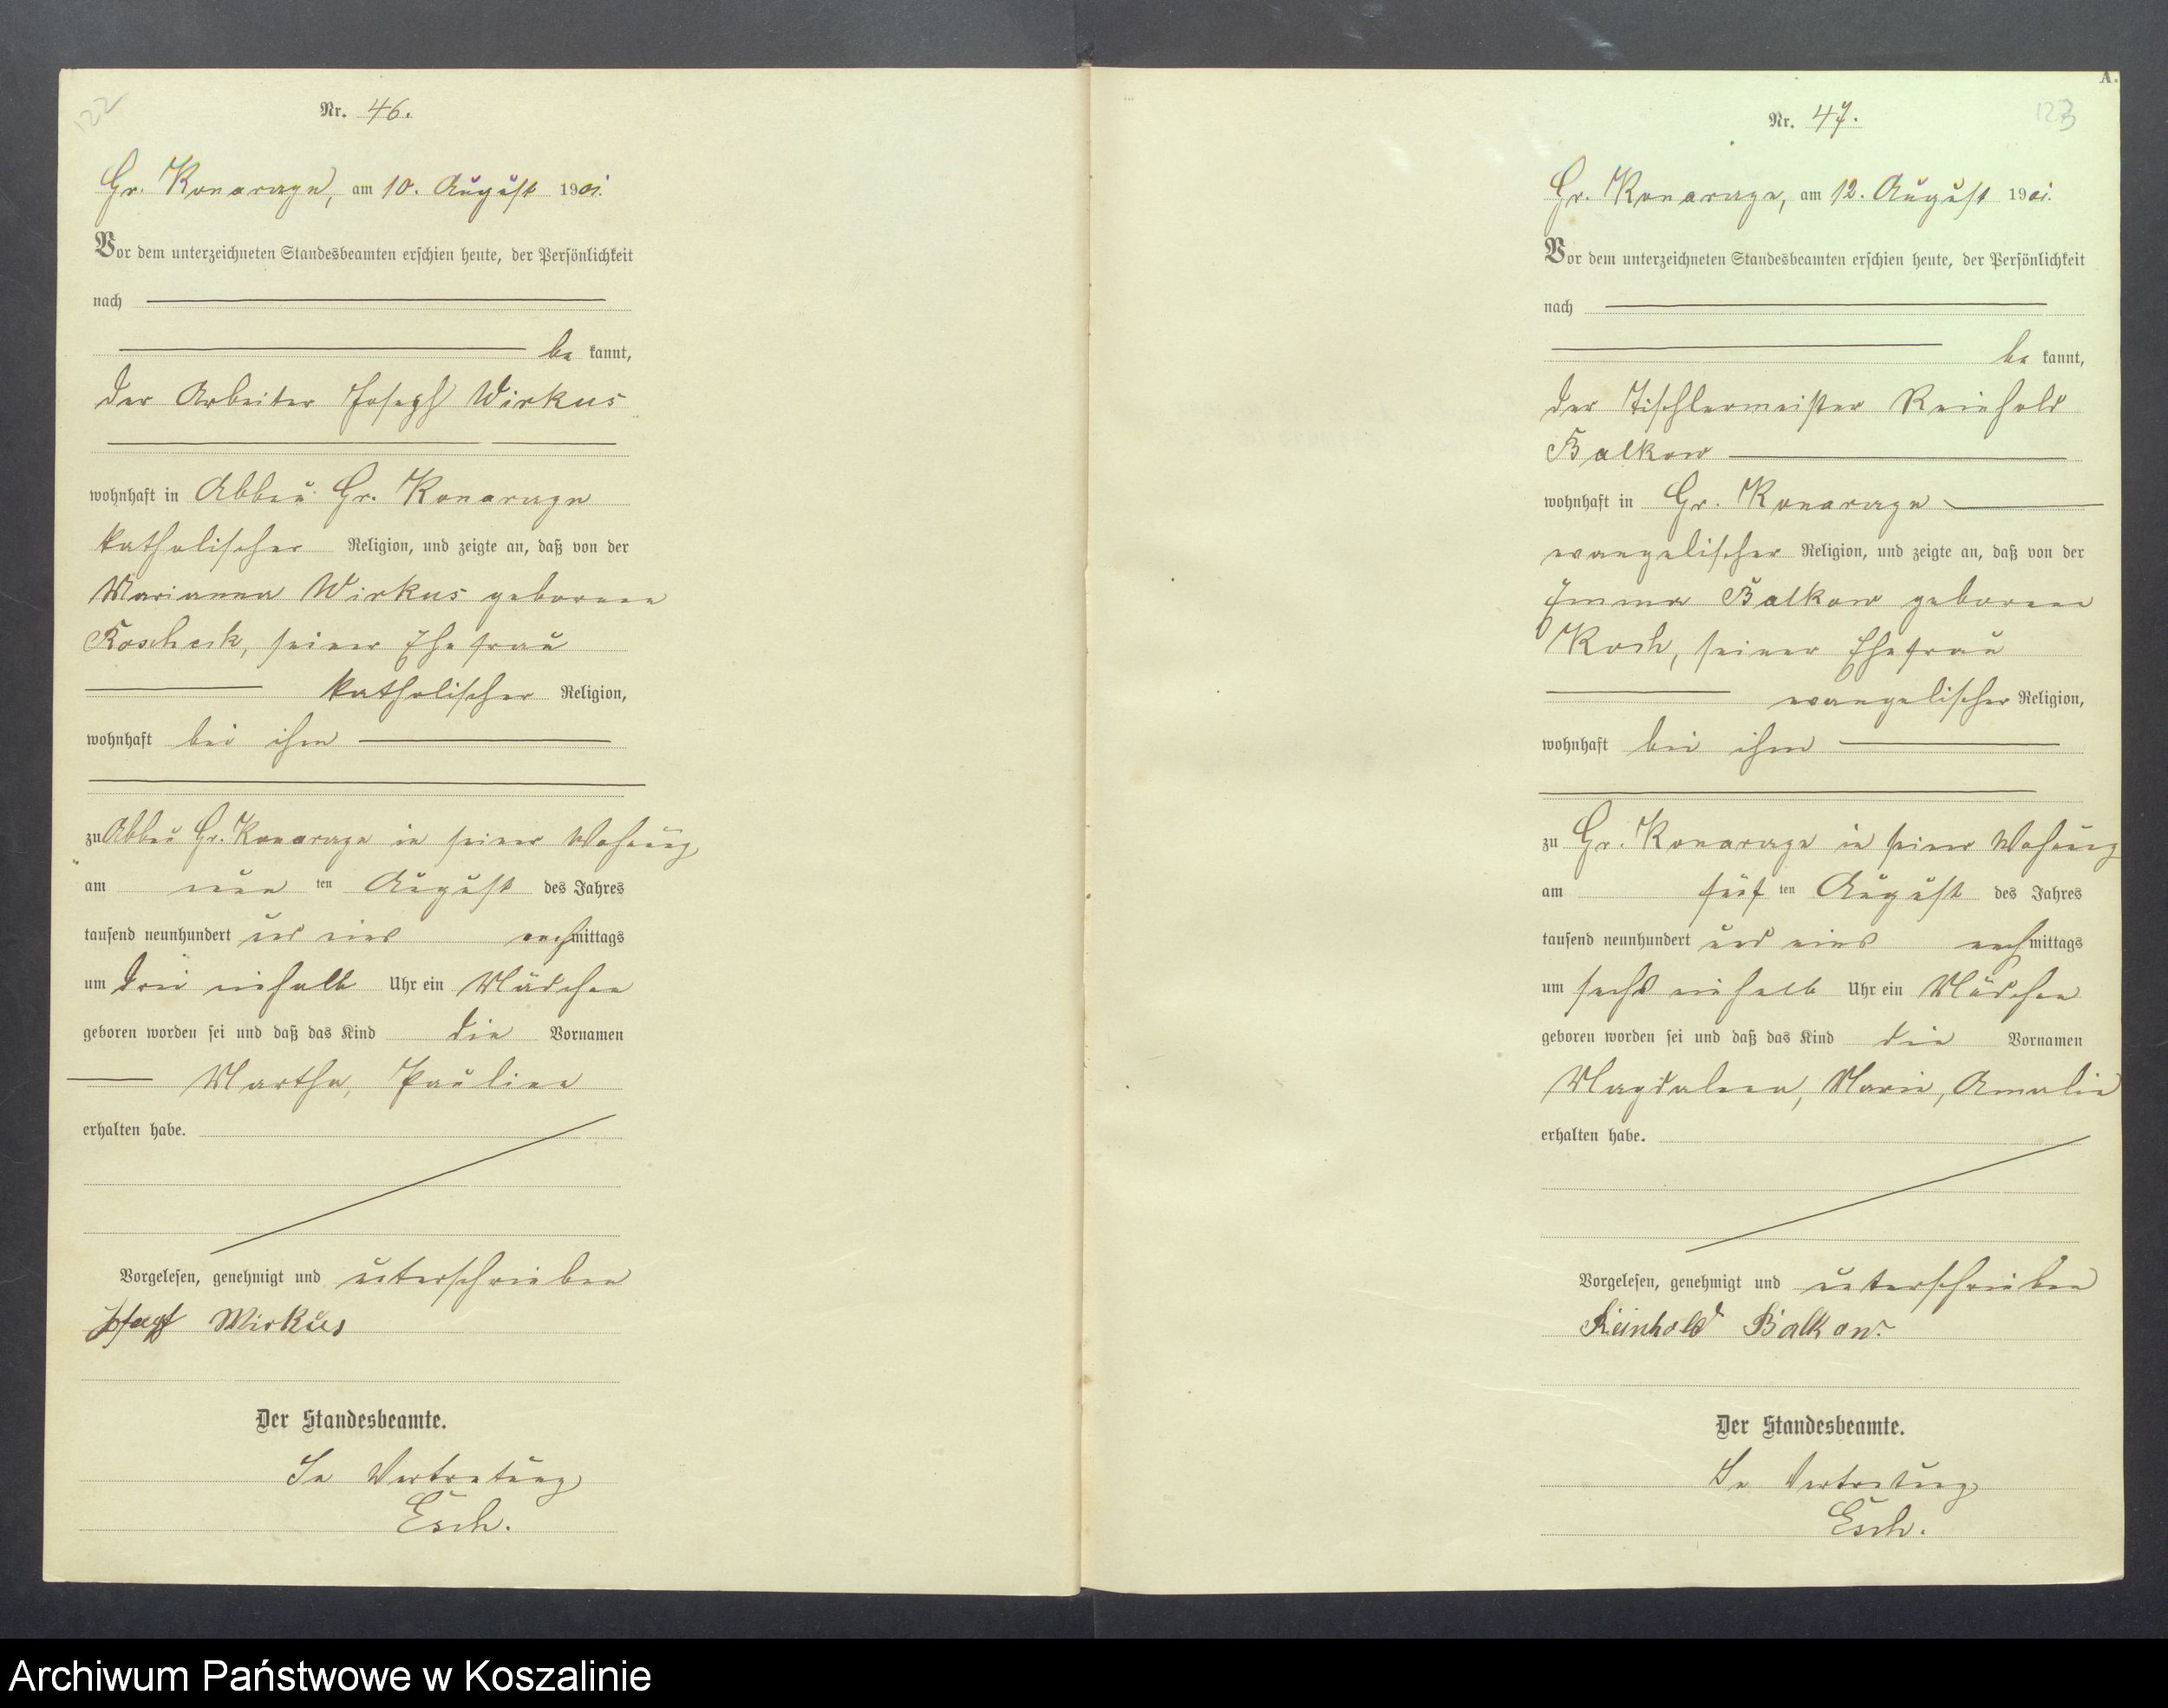 122
Nr. 46.
Gr. Konarczyn, am 10. August 1901.
Vor dem unterzeichneten Standesbeamten erschien heute, der Persönlichkeit
nach
be kannt,
der Arbeiter Joseph Wirkus
wohnhaft in Abbau Gr. Konarczyn
katholischer Religion, und zeigte an, daß von der
Marianna Wirkus geborene
Koscheck, seiner Ehefrau
katholischer Religion,
wohnhaft bei ihm
zu Abbau Gr. Konarczyn in seiner Wohnung
am neun ten August des Jahres
tausend neunhundert und eins nachmittags
um drei einhalb Uhr ein Mädchen
geboren worden sei und daß das Kind die Vornamen
Martha, Pauline
erhalten habe.
Vorgelesen, genehmigt und unterschrieben
Josepf Wirkus
Der Standesbeamte.
In Vertretung
Esch.
A.
123
Nr. 47.
Gr. Konarczyn, am 12. August 1901.
Vor dem unterzeichneten Standesbeamten erschien heute, der Persönlichkeit
nach
be kannt,
der Tischlermeister Reinhold
Balkow
wohnhaft in Gr. Konarczyn
evangelischer Religion, und zeigte an, daß von der
Emma Balkow geborene
Koch, seiner Ehefrau
evangelischer Religion,
wohnhaft bei ihm
zu Gr. Konarczyn in seiner Wohnung
am fünf ten August des Jahres
tausend neunhundert und eins nachmittags
um sechs einhalb Uhr ein Mädchen
geboren worden sei und daß das Kind die Vornamen
Magdalena, Marie, Amalie
erhalten habe.
Vorgelesen, genehmigt und unterschrieben
Reinhold Balkow.
Der Standesbeamte.
In Vertretung
Esch.
Archiwum Państwowe w Koszalinie